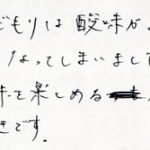 どもりは 酸味が
なってしまいまし
味を楽しめる
きです。